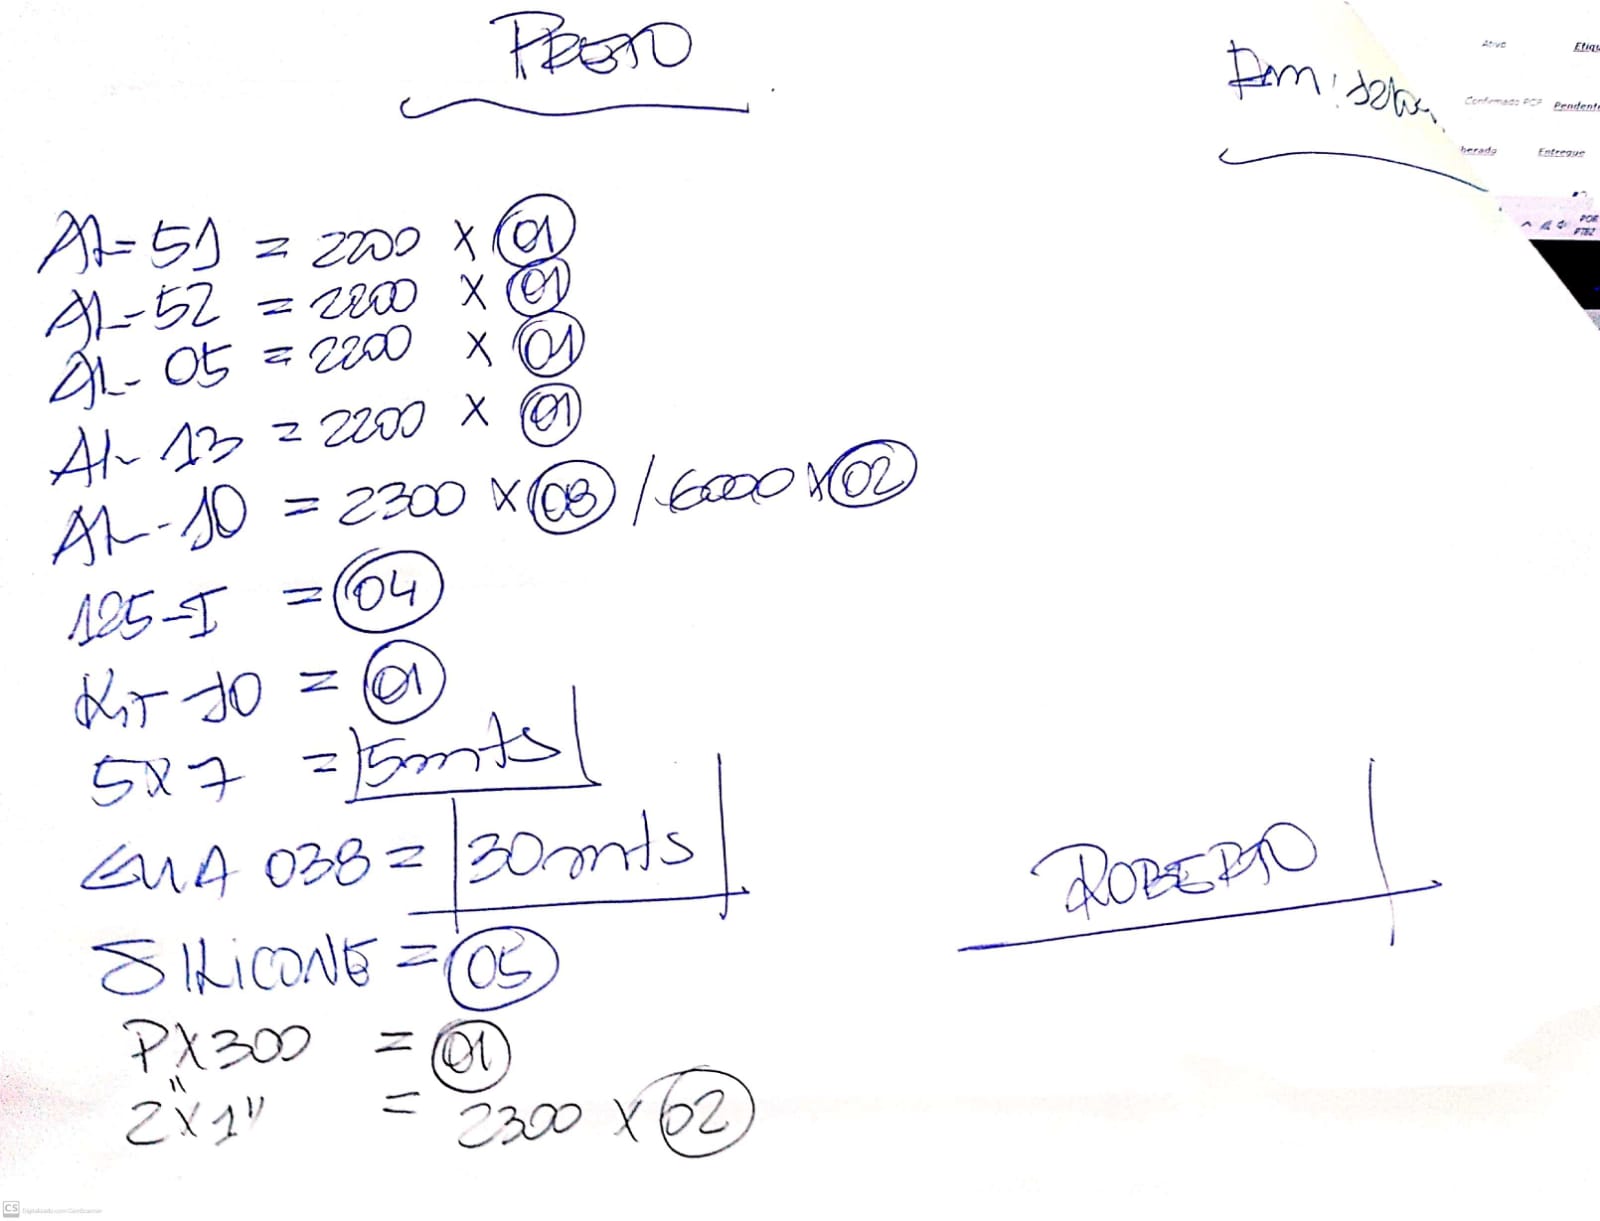 PRETO
Ativo Etiqu
Confirmado PCP Pendente
berado Entregue
POR
PTB2
AL-51 = 2200 X 01
AL-52 = 2200 X 01
AL-05 = 2200 X 01
AL-13 = 2200 X 01
AL-10 = 2300 X 08 / 6000 X 02
125-I = 04
KIT 10 = 01
5X7 = 15mts
GUA 038 = 30mts
ROBERTO
SILICONE = 05
PX300 = 01
2"X1" = 2300 X 02
CS Digitalizado com CamScanner